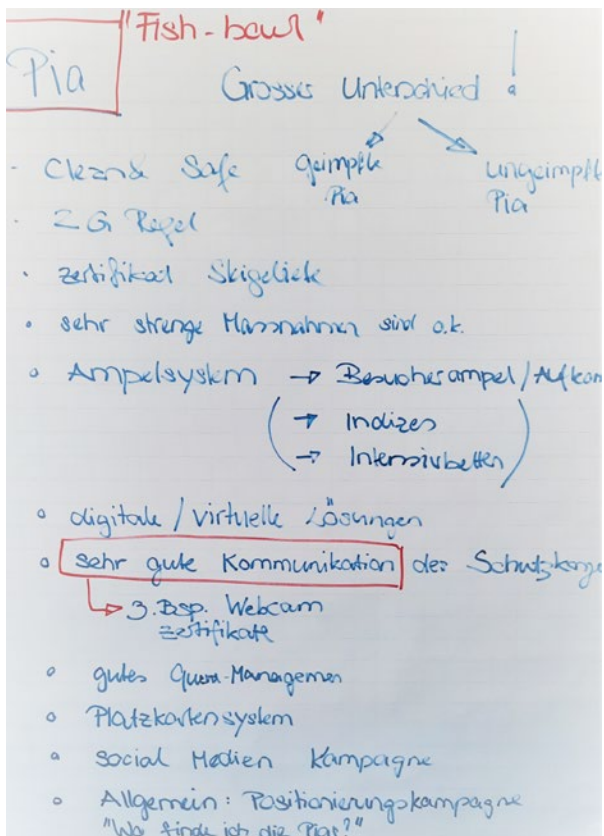 "Fish-bowl"
Pia
Grosser Unterschied !
geimpfte Pia
ungeimpfte Pia
- Clean & Safe
- 2G Regel
- Zertifikat Skigebiete
• sehr strenge Massnahmen sind o.k.
• Ampelsystem → Besucherampel / Aufkom
( → Indizes
→ Intensivbetten )
• digitale / virtuelle Lösungen
• sehr gute Kommunikation der Schutzkonze
↳ z.Bsp. Webcam
Zertifikate
• gutes Queue-Managemen
• Platzkartensystem
• social Medien Kampagne
• Allgemein: Positionierungskampagne
"Wo finde ich die Pias?"